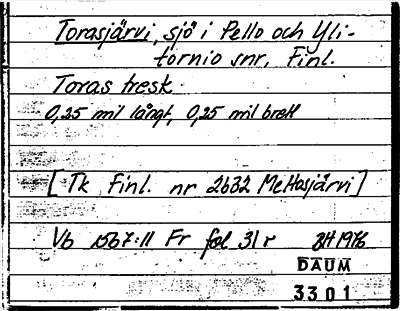 Torasjärvi, sjö i Pello och Yli-
tornio snr, Finl.
Toras tresk
0,25 mil långt, 0,25 mil brett
[Tk Finl. nr 2632 Mettasjärvi]
Vb 1567:11 Fr fol 31 r 1976
DAUM
3301